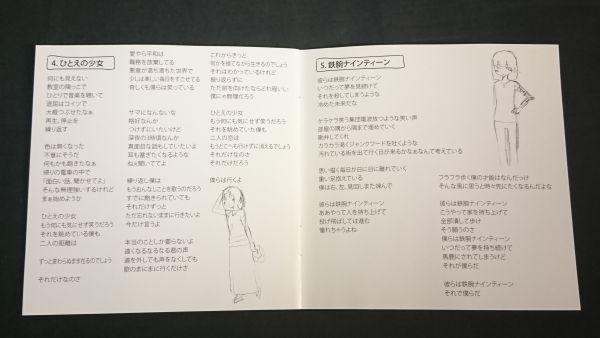 4. ひとえの少女
何にも見えない
教室の隅っこで
ひとりで音楽を聴いて
退屈はコイツで
大概つぶせたなぁ
再生、停止を
繰り返す
色は無くなった
不意にそうだ
何もかも飽きたなぁ
帰りの電車の中で
「面白い話、聞かせてよ」
そんな無理強いするけれど
まぁ始めようか
ひとえの少女
もう何にも気にせず笑うだろう
それを眺めている僕も
二人の距離は
ずっと変わらぬままなのでしょう
それだけなのさ
愛やら平和は
職務を放棄してる
悪意が満ち満ちた世界で
少しは楽しい毎日をすごせてる
奇しくも僕らは笑っている
サマになんないな
格好なんか
つけずにいたいけど
深夜の3時頃なんか
真面目な話もしていたいよ
耳も塞ぎたくなるような
ねぇ聞いててよ
繰り返し僕は
もうおんなじことを歌うのだろう
すでに飽きられていても
それだけずっと
ただ忘れないままに行きたいよ
今だけ言うよ
本当のことしか要らないよ
遠くなるなるなる君の声
道を外しても声をなくしても
歌のまにまに行くだけさ
これからきっと
何かを捨てながら生きるのでしょう
それはわかっているけれど
振り返らずに
ただ前を向けたならどれ程いい
僕にゃ無理だろう
ひとえの少女
もう何にも気にせずに笑うだろう
それを眺めていた僕も
二人の恋は
もうどこへも行けずに消えるでしょう
それだけなのさ
それだけだろう
僕らは行くよ
5. 鉄腕ナインティーン
彼らは鉄腕ナインティーン
いつだって夢を見続けて
それを殺してしまうような
冷めた未来だな
ケラケラ笑う集団電波放つような笑い声
部屋の隅から隅まで埋めていく
勘弁してくれ
カラカラ渇くジャンクフードを吐くような
汚れている術を出て行く日が来るかなぁなんて考えている
思い描く毎日が日に日に離れていく
重い足抱えている
僕は右、左、見回しまた竦んで
彼らは鉄腕ナインティーン
ああやって人を持ち上げて
投げ飛ばしては進む
憧れちゃうよね
フラフラ歩く僕の才能はなんだっけ
そんな風に思うと時々死にたくなるんだよな
彼らは鉄腕ナインティーン
こうやって家を持ち上げて
全部潰して歩け
そう願うのさ
僕らは鉄腕ナインティーン
いつだって夢を持ち続けて
馬鹿にされてしまうけど
それが僕らだ
彼らは鉄腕ナインティーン
それで僕らだ